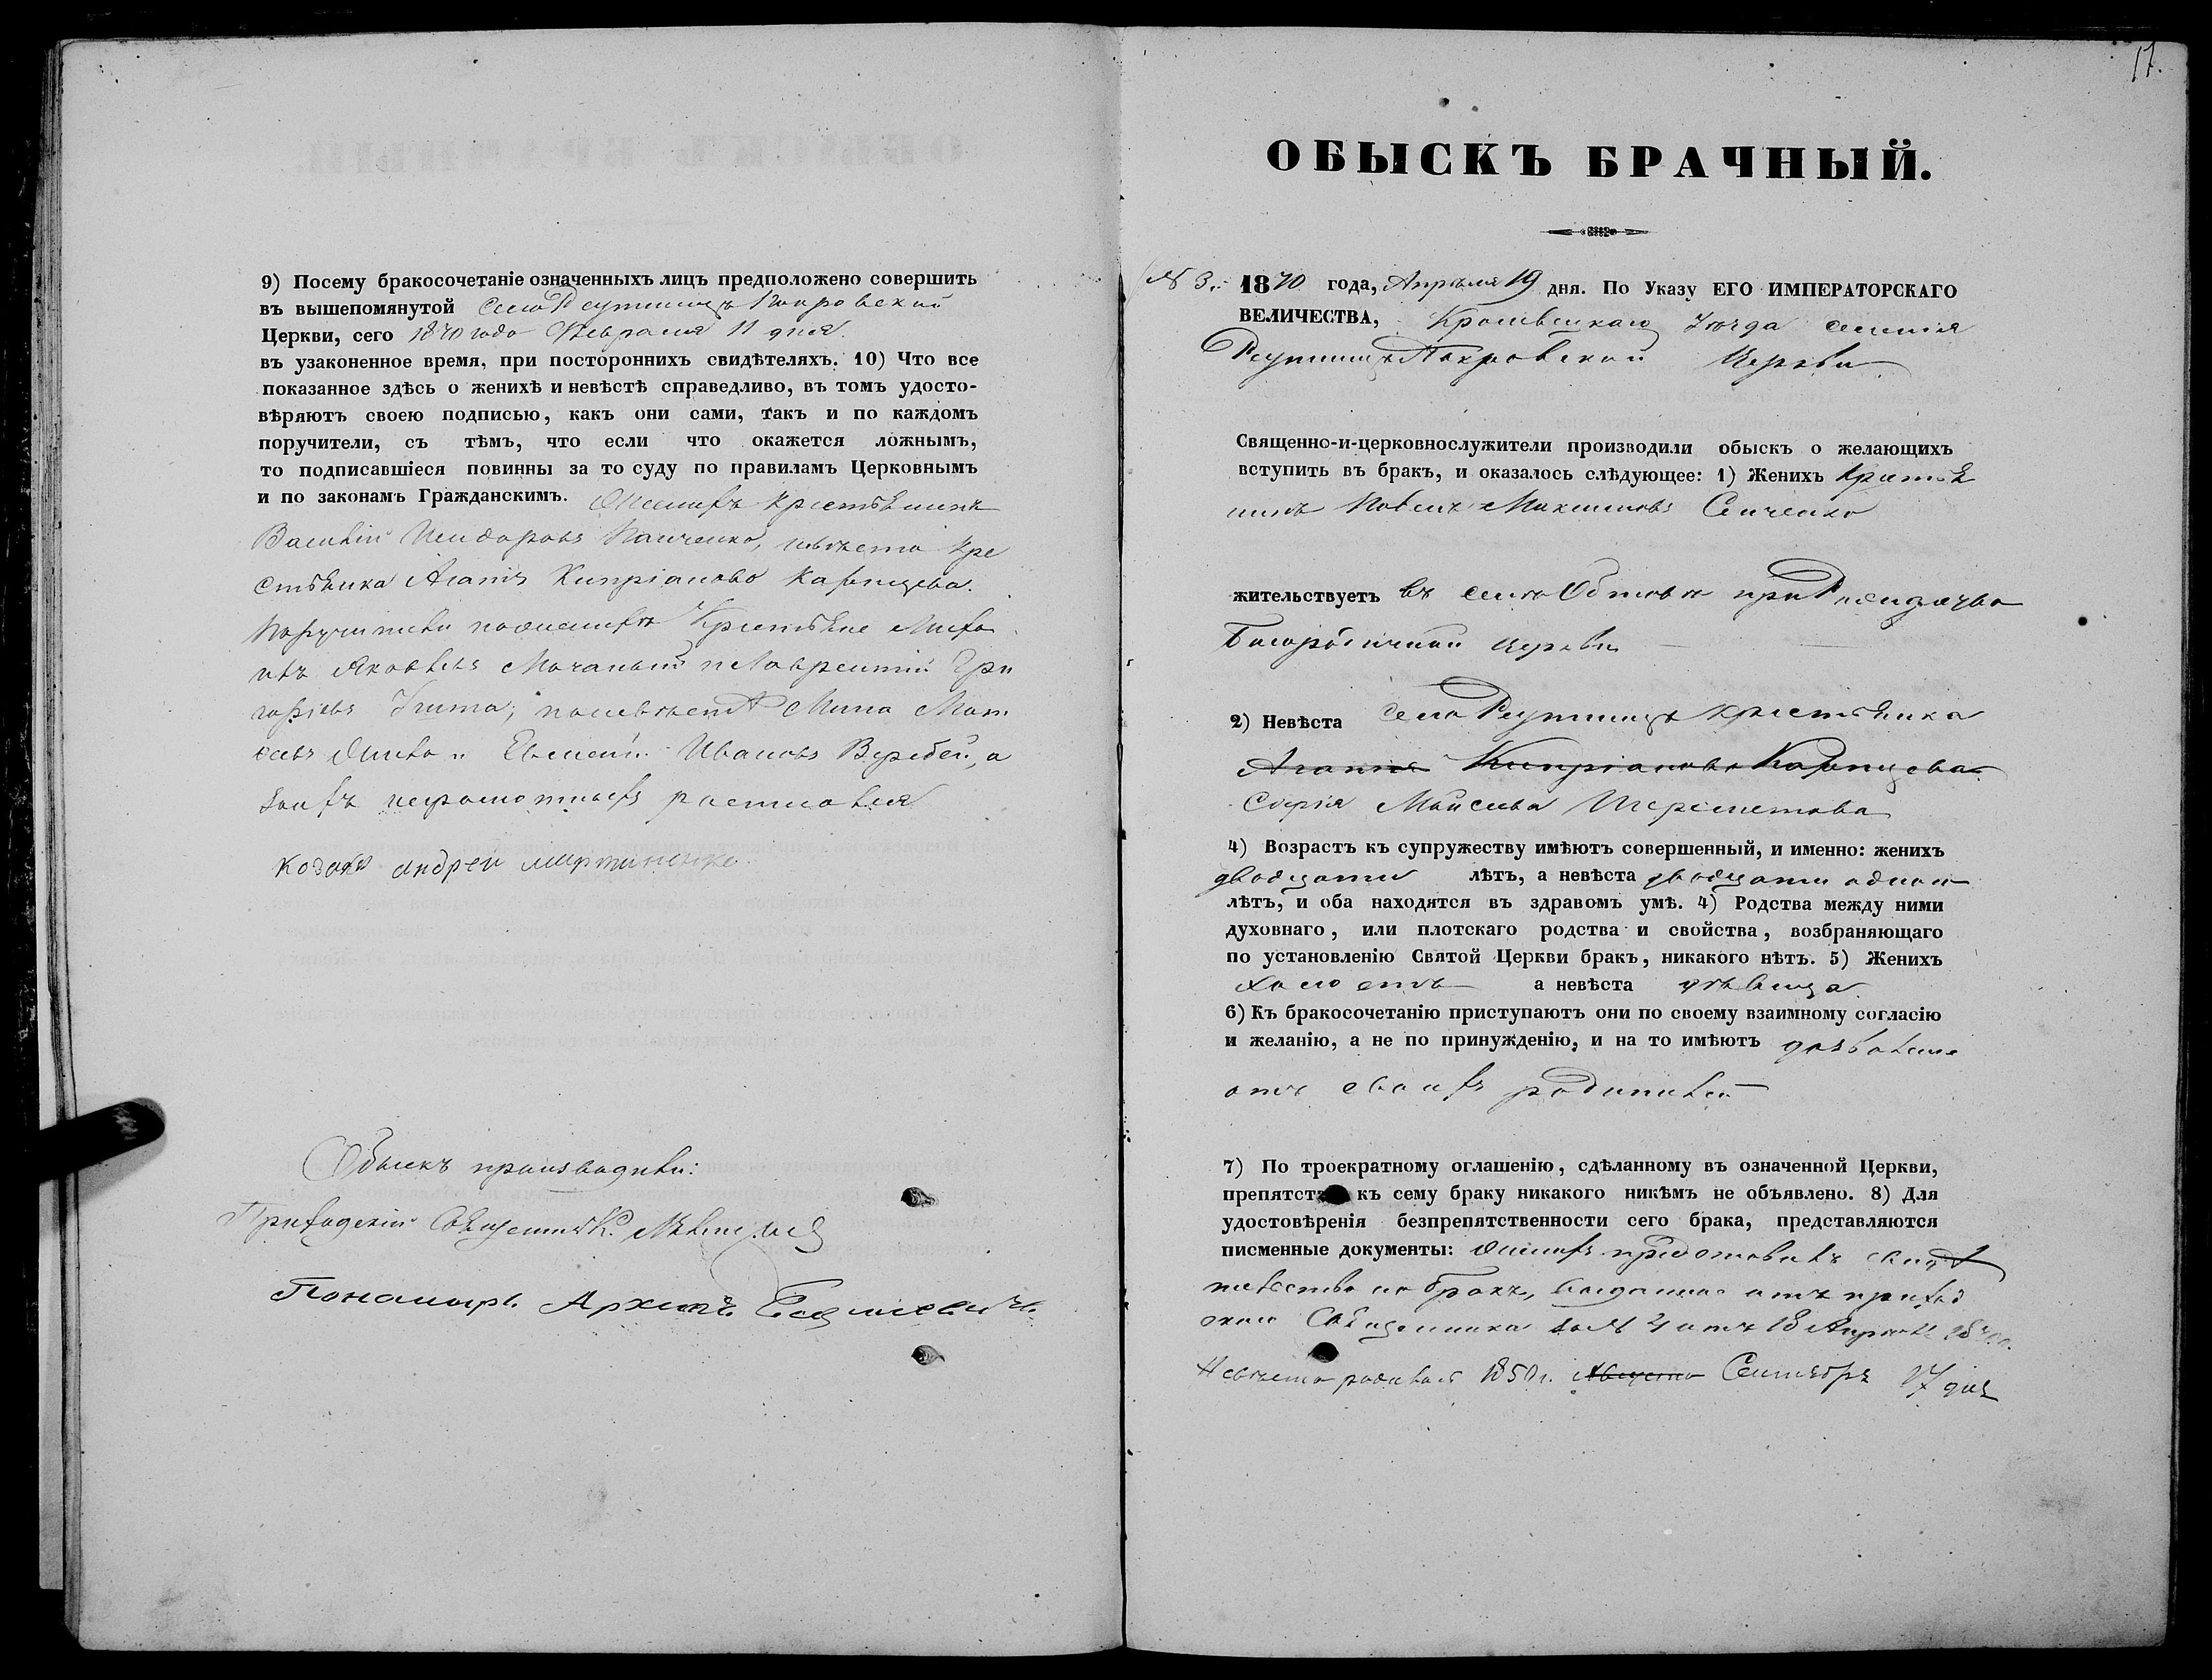 9) Посему бракосочетаніе означенныхъ лицъ предположено совершить
въ вышепомянутой Села Реутинецъ Покровской
Церкви, сего 1870 года Февраля 11 дня
въ узаконенное время, при постороннихъ свидѣтеляхъ. 10) Что все
показанное здѣсь о женихѣ и невѣстѣ справедливо, въ томъ удосто-
вѣряютъ своею подписью, какъ они сами, такъ и по каждомъ
поручители, съ тѣмъ, что если что окажется ложнымъ,
то подписавшіеся повинны за то суду по правиламъ Церковнымъ
и по законамъ Гражданскимъ. Женихъ крестьянинъ
Василій Исидоровъ Панченко, невѣста кре
стьянка Агапія Кипріанова Карпцева.
Поручители по женихѣ Крестьяне
Яковлевъ и Лаврентій Гри
горіевъ по невѣстѣ Мина
и Евменій Ивановъ Веребей, а
за ихъ неграмотныхъ росписался
козакъ андреи мартиненко
Обыскъ производили:
Приходскій Священникъ
Пономарь Архипъ
17.
ОБЫСКЪ БРАЧНЫЙ.
№ 3. 1870 года, Апрѣля 19 дня. По Указу ЕГО ИМПЕРАТОРСКАГО
ВЕЛИЧЕСТВА, Кролевецкаго уѣзда селенія
Реутинецъ Покровской Церкви
Священно-и-церковнослужители производили обыскъ о желающихъ
вступить въ бракъ, и оказалось слѣдующее: 1) Женихъ Крестья
нинъ Павелъ Максимовъ Сенченко
жительствуетъ въ селѣ Обтовѣ при Рождество
Богородичной церкви
2) Невѣста Села Реутинецъ крестьянка
Агапія Кипріанова Карпцева
Софія Моисеева Шереметова
4) Возрастъ къ супружеству имѣютъ совершенный, и именно: женихъ
двадцати лѣтъ, а невѣста двадцати одного
лѣтъ, и оба находятся въ здравомъ умѣ. 4) Родства между ними
духовнаго, или плотскаго родства и свойства, возбраняющаго
по установленію Святой Церкви бракъ, никакого нѣтъ. 5) Женихъ
холостъ а невѣста дѣвица
6) Къ бракосочетанію приступаютъ они по своему взаимному согласію
и желанію, а не по принужденію, и на то имѣютъ дозволеніе
отъ своихъ родителей
7) По троекратному оглашенію, сдѣланному въ означенной Церкви,
препятст къ сему браку никакого никѣмъ не объявлено. 8) Для
удостовѣренія безпрепятственности сего брака, представляются
писменные документы: Женихъ предоставилъ свидѣ
тельство на бракъ, выданное отъ приход
скаго Священника за № 4 отъ 18 Апрѣля 1870 г.
Невѣста родилась 1850 г. Августа Сентября 17 дня